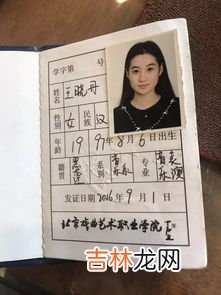 学字第 号
姓名 王晓丹
性别 女 民族 汉
年龄 1997年8月6日出生
籍贯 系别 专业 表演
发证日期 2016年9月1日
北京戏曲艺术职业学院
吉林龙网